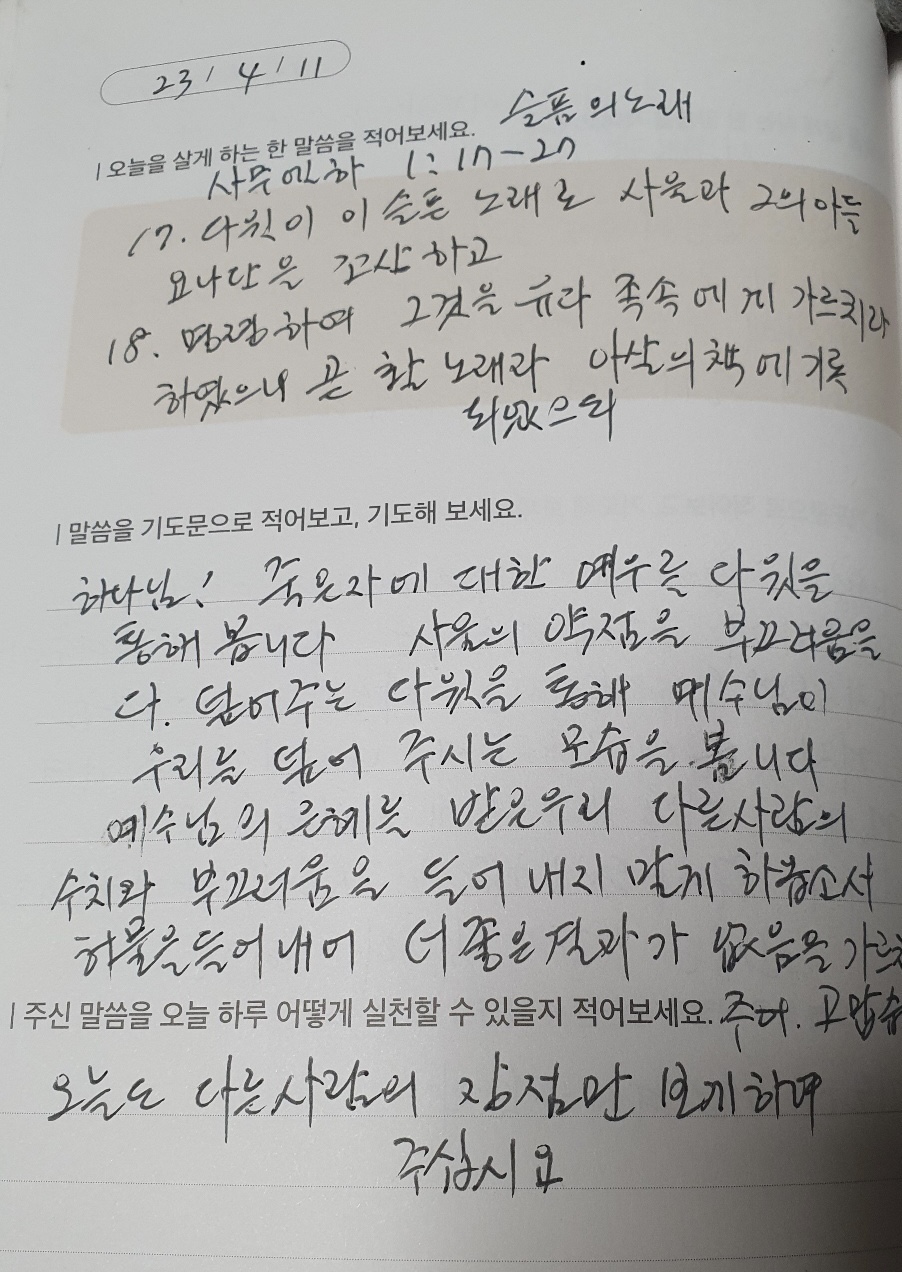 23 / 4 / 11
슬픔의 노래
| 오늘을 살게 하는 한 말씀을 적어보세요.
사무엘하 1:17-27
17. 다윗이 이 슬픈 노래로 사울과 그의 아들
요나단을 조상하고
18. 명령하여 그것을 유다 족속에게 가르치라
하였으니 곧 활 노래라 야살의 책에 기록
되었으되
| 말씀을 기도문으로 적어보고, 기도해 보세요.
하나님! 죽은자에 대한 예우를 다윗을
통해 봅니다 사울의 약점을 부끄러움을
다. 덮어주는 다윗을 통해 예수님이
우리를 덮어 주시는 모습을 봅니다
예수님의 은혜를 받은우리 다른사람의
수치와 부끄러움을 들어 내지 말게 하옵소서
허물을 들어내어 더 좋은결과가 없음을 가르치
| 주신 말씀을 오늘 하루 어떻게 실천할 수 있을지 적어보세요. 주여. 고맙습
오늘도 다른사람의 장점만 보게하여
주십시요